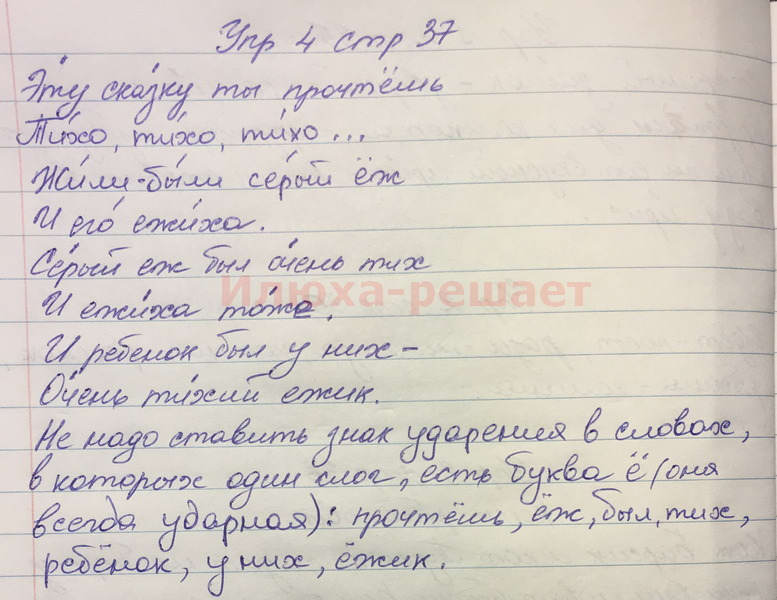 Упр 4 стр 37
Э́ту ска́зку ты прочтёшь
Ти́хо, ти́хо, ти́хо...
Жи́ли-бы́ли се́рый ёж
И его́ ежи́ха.
Се́рый еж был о́чень тих
Илюха-решает
И ежи́ха то́же.
И ребенок был у них –
О́чень ти́хий ежик.
Не надо ставить знак ударения в словах,
в которых один слог, есть буква ё (она
всегда ударная): прочтёшь, ёж, был, тих,
ребёнок, у них, ёжик.